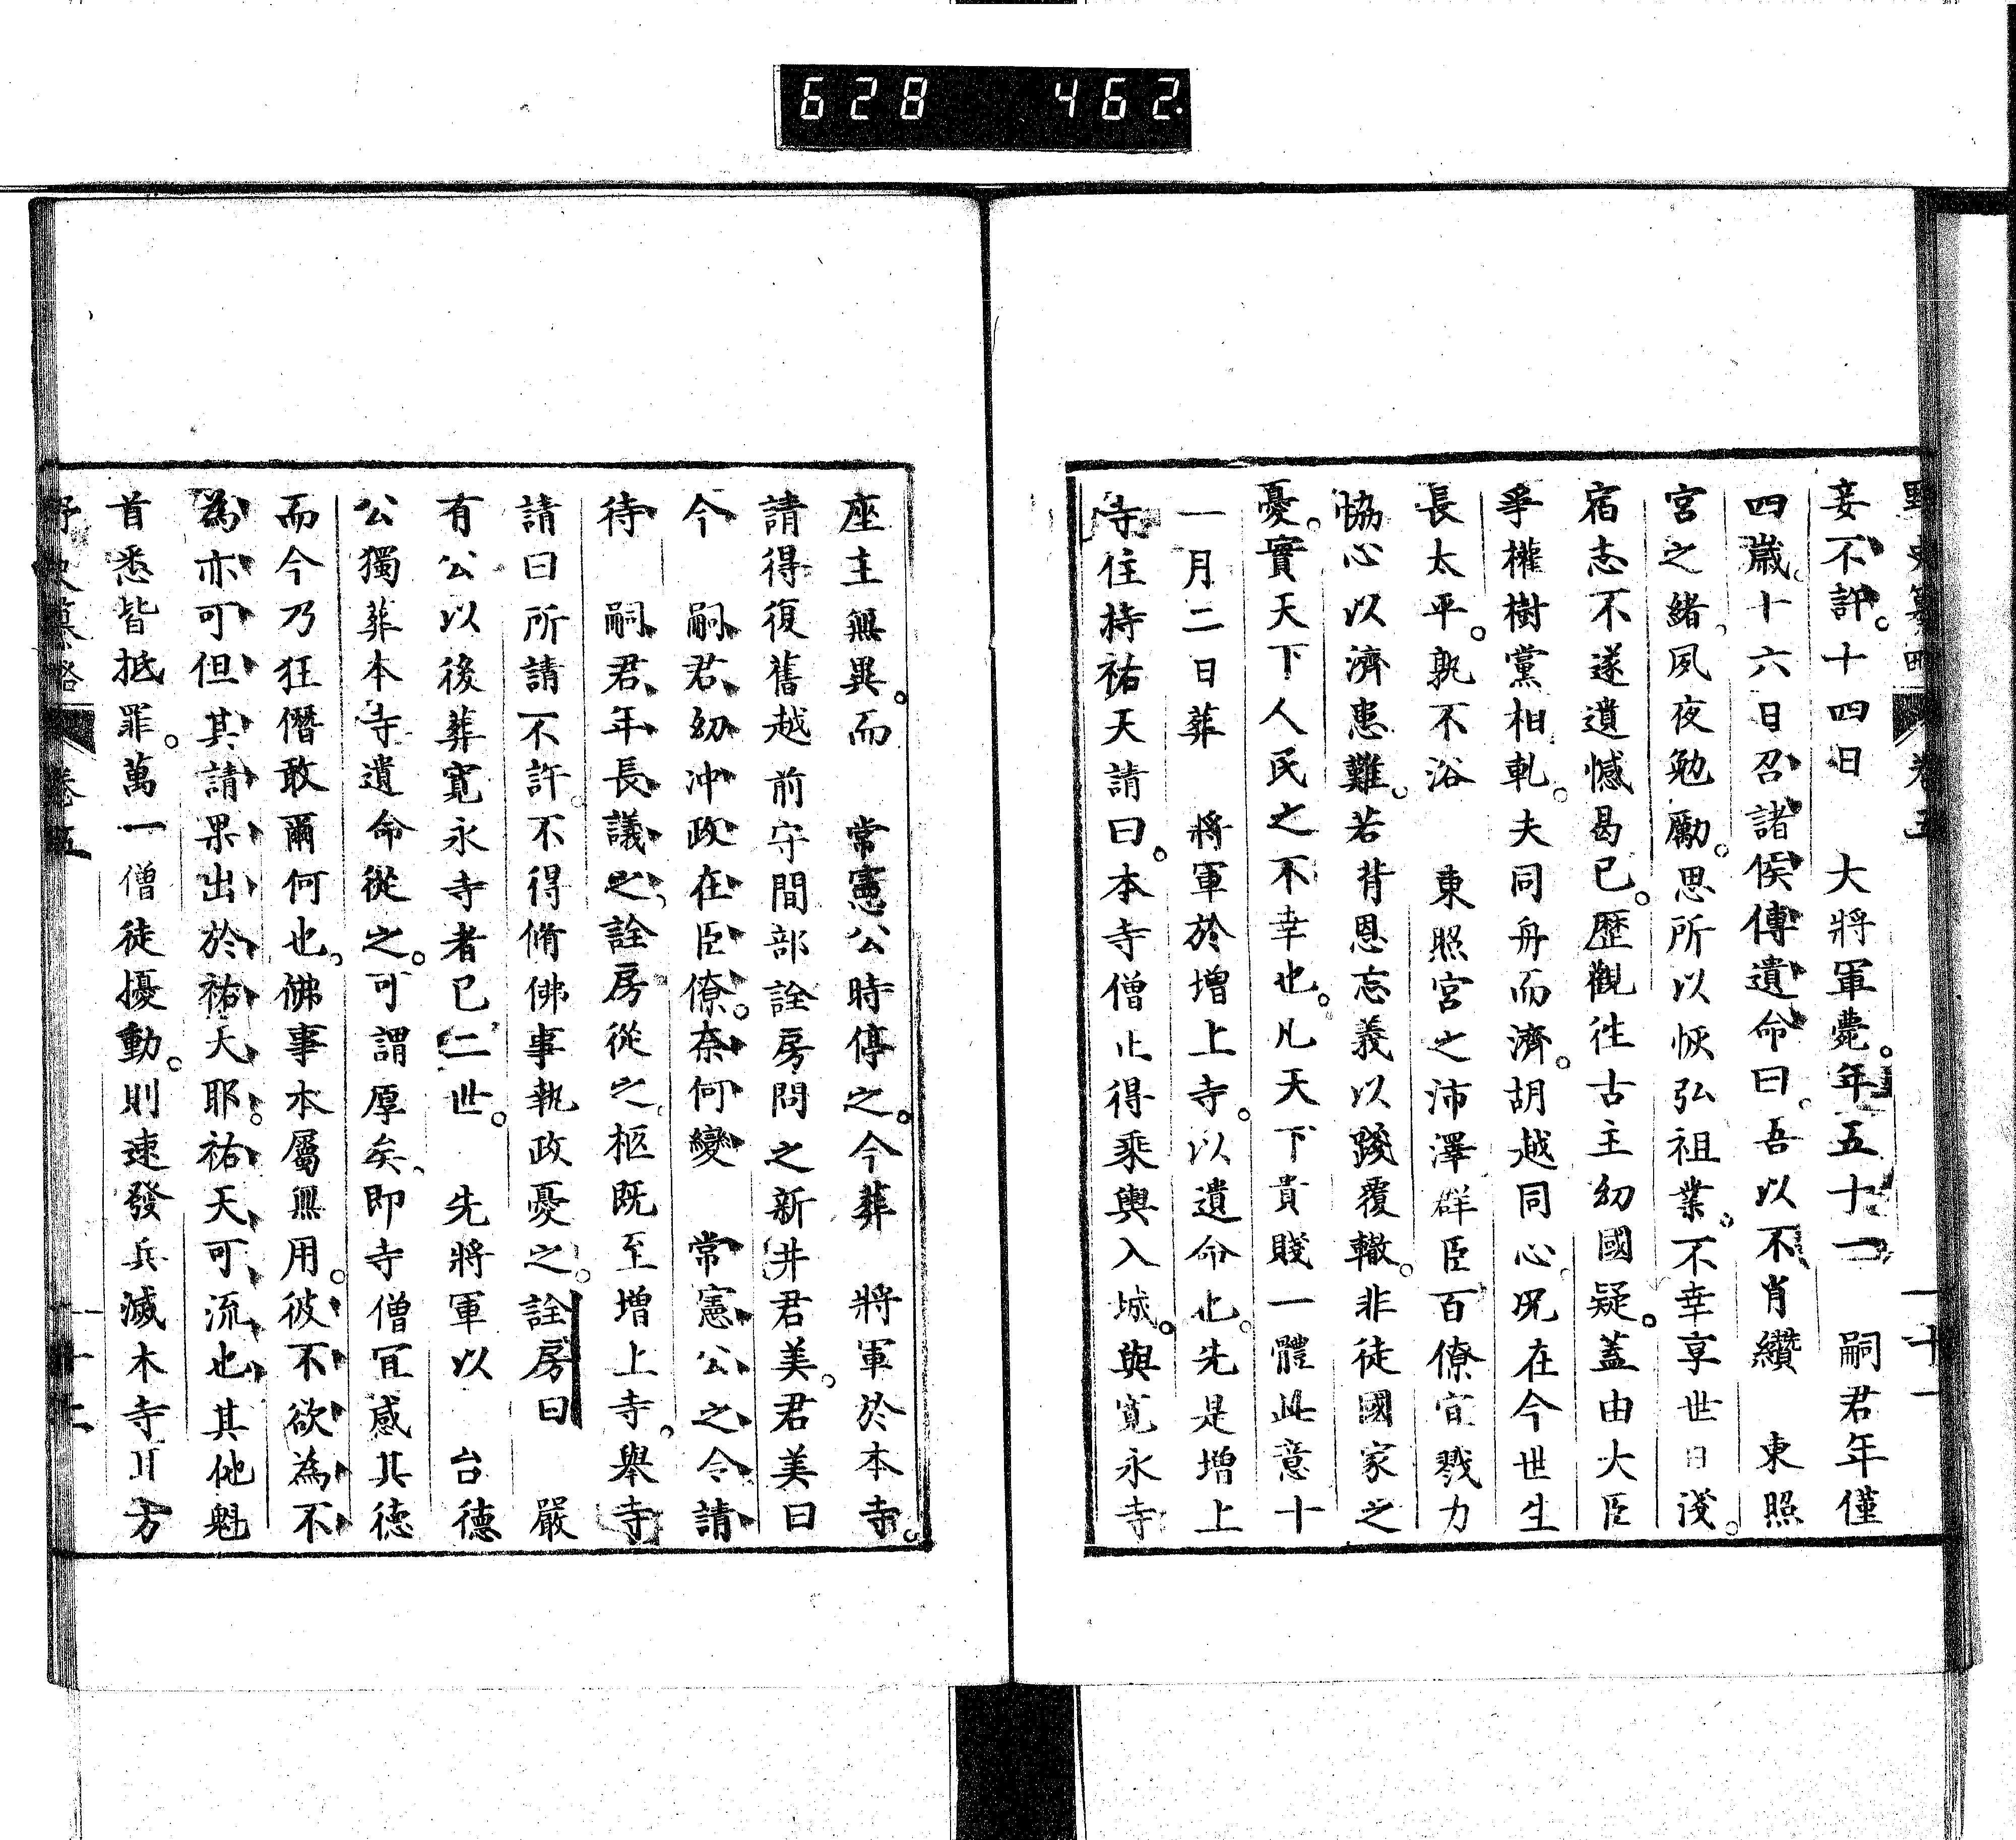 628 462
野史纂略 卷五 十一
妾不許。十四日　大將軍薨。年五十一　嗣君年僅
四歲。十六日召諸侯傳遺命曰。吾以不肖纘　東照
宮之緒。夙夜勉勵。思所以恢弘祖業。不幸享世日淺。
宿志不遂遺憾曷已。歷觀往古主幼國疑。蓋由大臣
爭權樹黨相軋。夫同舟而濟。胡越同心。況在今世生
長太平。孰不浴　東照宮之沛澤群臣百僚宜戮力
恊心以濟患難。若背恩忘義以踐覆轍。非徒國家之
憂。實天下人民之不幸也。凡天下貴賤一體此意十
一月二日葬　將軍於增上寺。以遺命也。先是增上
寺住持祐天請曰。本寺僧止得乘輿入城。與寬永寺
座主無異。而　常憲公時停之。今葬　將軍於本寺。
請得復舊越前守間部詮房問之新井君美。君美曰
今　嗣君幼冲政在臣僚。奈何變　常憲公之令請
待　嗣君年長議之。詮房從之。柩既至增上寺。舉寺
請曰所請不許。不得脩佛事執政憂之。詮房曰　嚴
有公以後葬寬永寺者已二世。　先將軍以　台德
公獨葬本寺遺命從之。可謂厚矣。即寺僧宜感其德
而今乃狂僭敢爾何也。佛事本屬無用。彼不欲為不
為亦可但其請果出於祐天耶。祐天可流也其他魁
首悉皆抵罪。萬一僧徒擾動。則速發兵滅本寺耳方
野史纂略 卷五 十二